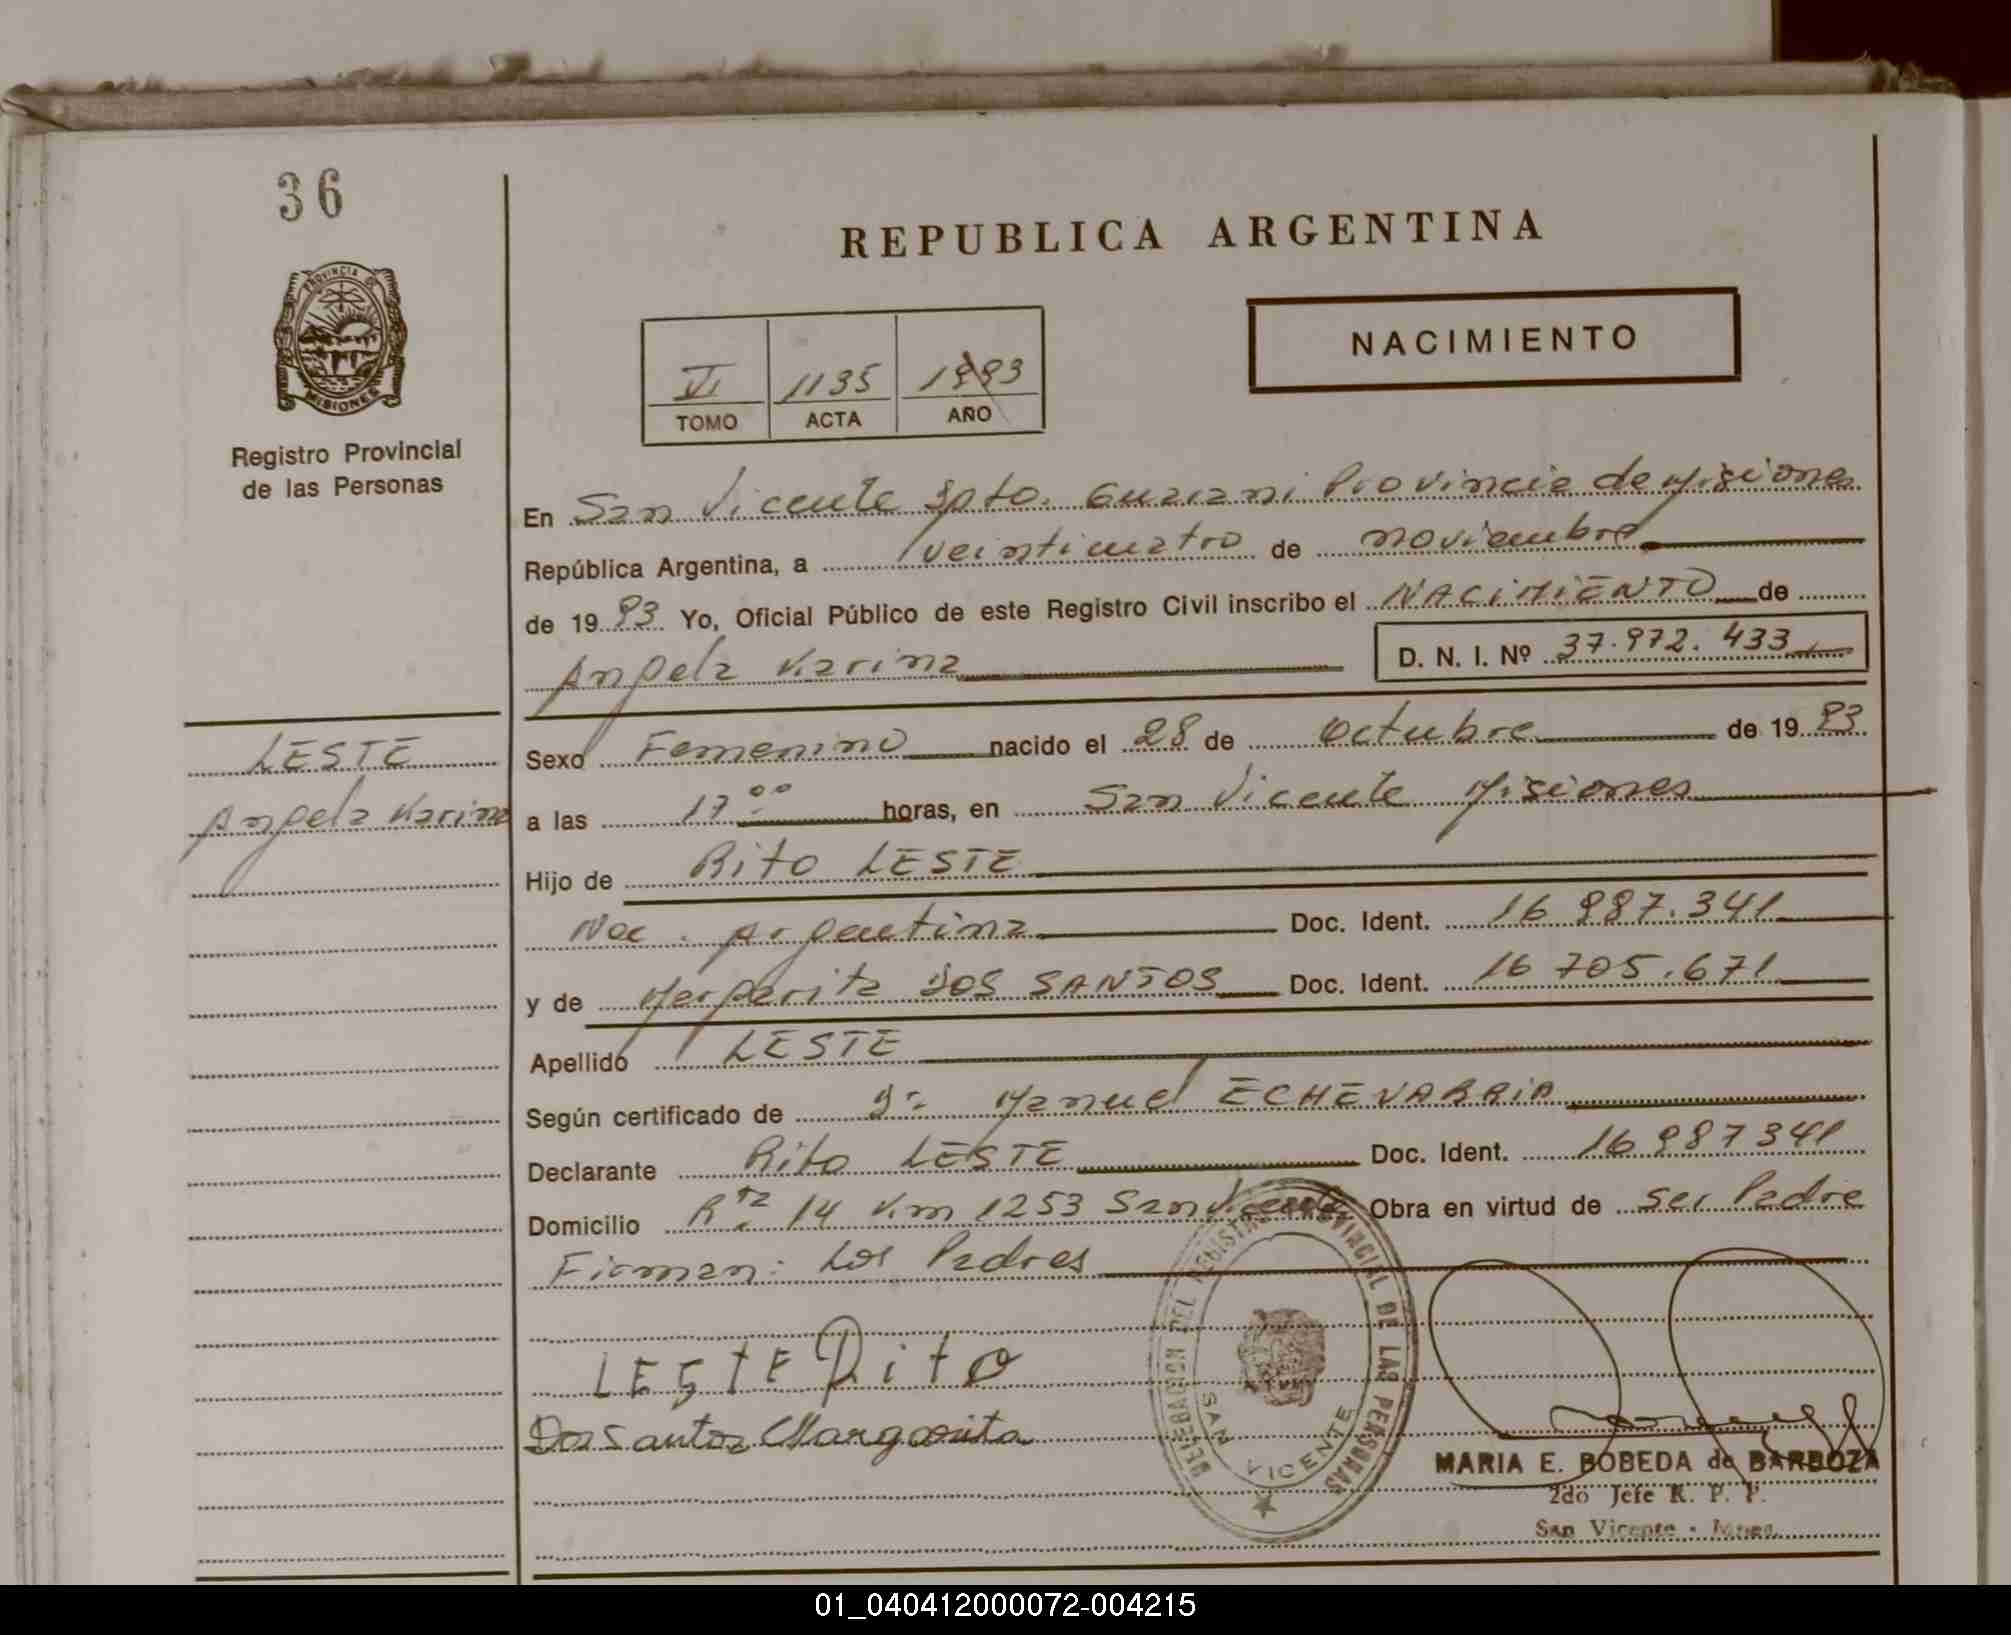 36
REPUBLICA ARGENTINA
PROVINCIA DE
MISIONES
Registro Provincial
de las Personas
NACIMIENTO
VI 1135 1993
TOMO ACTA AÑO
En San Vicente Dpto. Guarani Provincia de Misiones
República Argentina, a veinticuatro de noviembre
de 19 93 Yo, Oficial Público de este Registro Civil inscribo el NACIMIENTO de
Angela Karina D. N. I. Nº 37.972.433
LESTE
Angela Karina
Sexo Femenino nacido el 28 de Octubre de 19 93
a las 17 00 horas, en San Vicente Misiones
Hijo de Rito LESTE
Nac. Argentina Doc. Ident. 16 987.341
y de Margarita DOS SANTOS Doc. Ident. 16 705.671
Apellido LESTE
Según certificado de Dr. Manuel ECHEVARRIA
Declarante Rito LESTE Doc. Ident. 16 987341
Domicilio Rta 14 Km 1253 San Vicente Obra en virtud de ser Padre
Firman: Los Padres
LESTE Rito
Dos Santos Margarita
DELEGACION DEL REGISTRO PROVINCIAL DE LAS PERSONAS
SAN VICENTE
MARIA E. BOBEDA de BARBOZA
2do Jefe R. P. P.
San Vicente - Mnes.
01_040412000072-004215